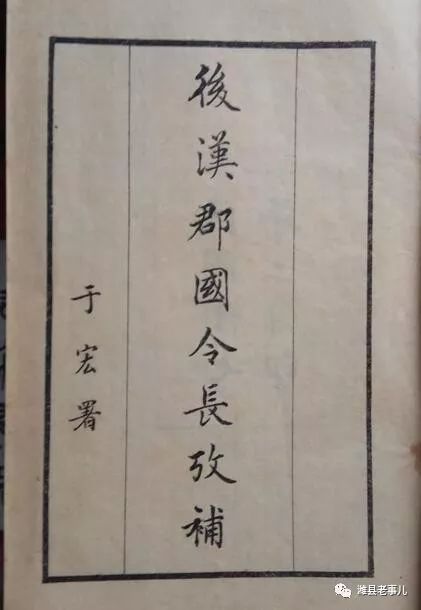 後漢郡國令長攷補
于宏署
濰县老事儿